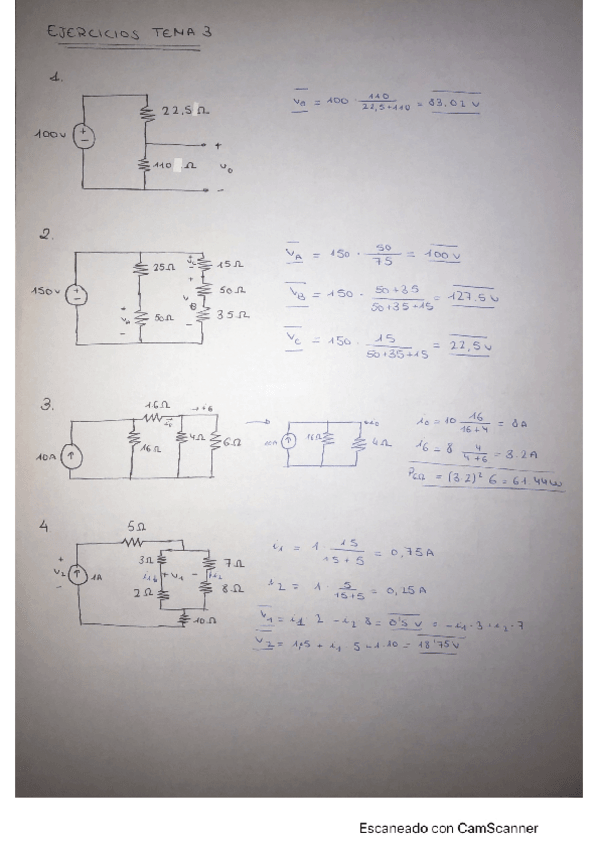 EJERCICIOS TEMA 3
1.
100V
22,5Ω
110 Ω
+
v0
-
v0 = 100 · 110 / 22,5+110 = 83,02 V
2.
150V
25Ω
vA
50Ω
vC
15Ω
vB
50Ω
35Ω
vA = 150 · 50 / 75 = 100 V
vB = 150 · 50+35 / 50+35+15 = 127.5 V
vC = 150 · 15 / 50+35+15 = 22,5 V
3.
10A
1.6Ω
i0
i6
16Ω
4Ω
6Ω
16Ω
i0
4Ω
i0 = 10 16 / 16+4 = 8A
i6 = 8 4 / 4+6 = 3.2A
P6Ω = (3.2)² 6 = 61.44W
4
5Ω
+
v2
-
1A
3Ω
2Ω
+ v1 -
i2
7Ω
8Ω
10Ω
i1 = 1 · 15 / 15+5 = 0,75A
i2 = 1 · 5 / 15+5 = 0,25A
v1 = i1 2 - i2 8 = 0'5 V = -i1·3+i2·7
v2 = 1,5 + i1 5 - 1·10 = 18'75V
Escaneado con CamScanner